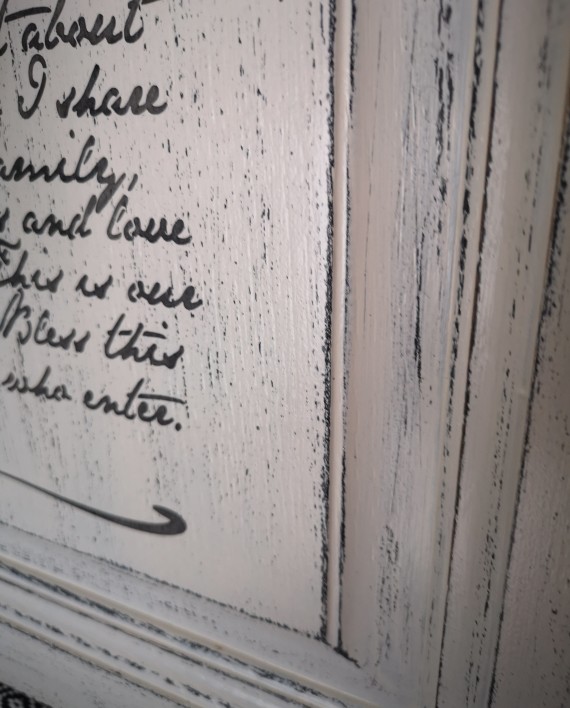 about
I share
amily,
and love
This is our
Bless this
who enter.